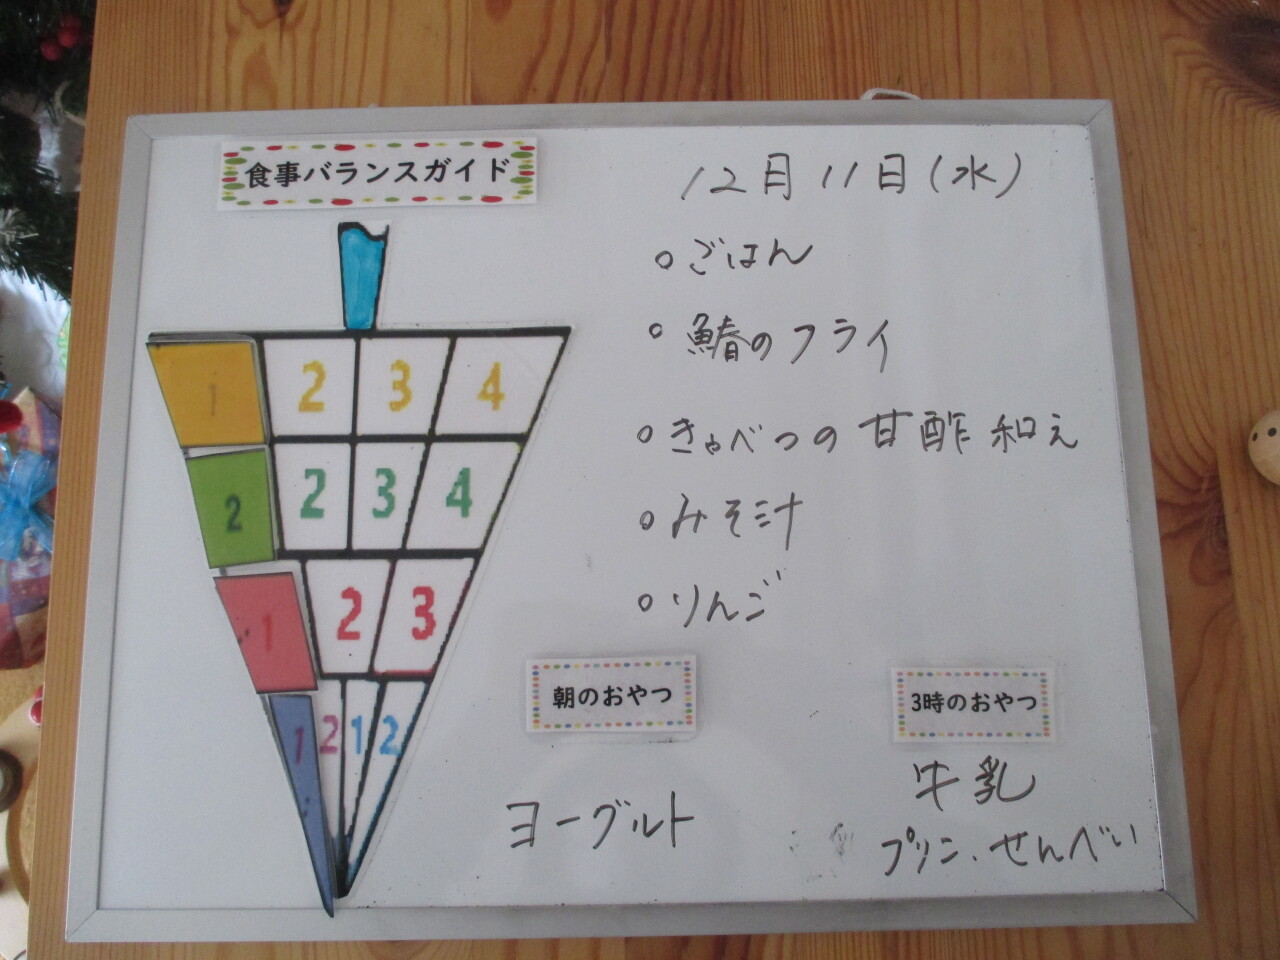 食事バランスガイド
12月11日(水)
ごはん
鰆のフライ
きゃべつの甘酢和え
みそ汁
りんご
1 2 3 4
2 2 3 4
1 2 3
1 2 1 2
朝のおやつ
ヨーグルト
3時のおやつ
牛乳
プリン、せんべい